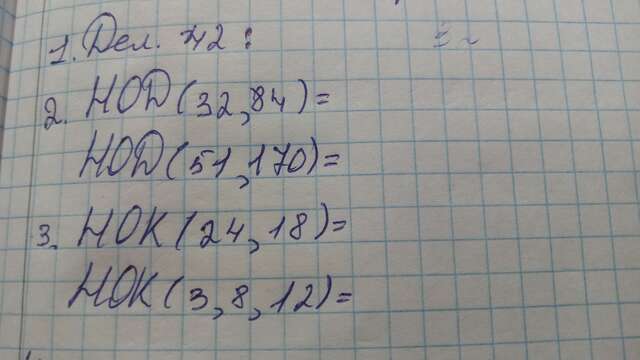 1. Дел. 42:
2. НОД(32,84)=
НОД(51,170)=
3. НОК(24,18)=
НОК(3,8,12)=